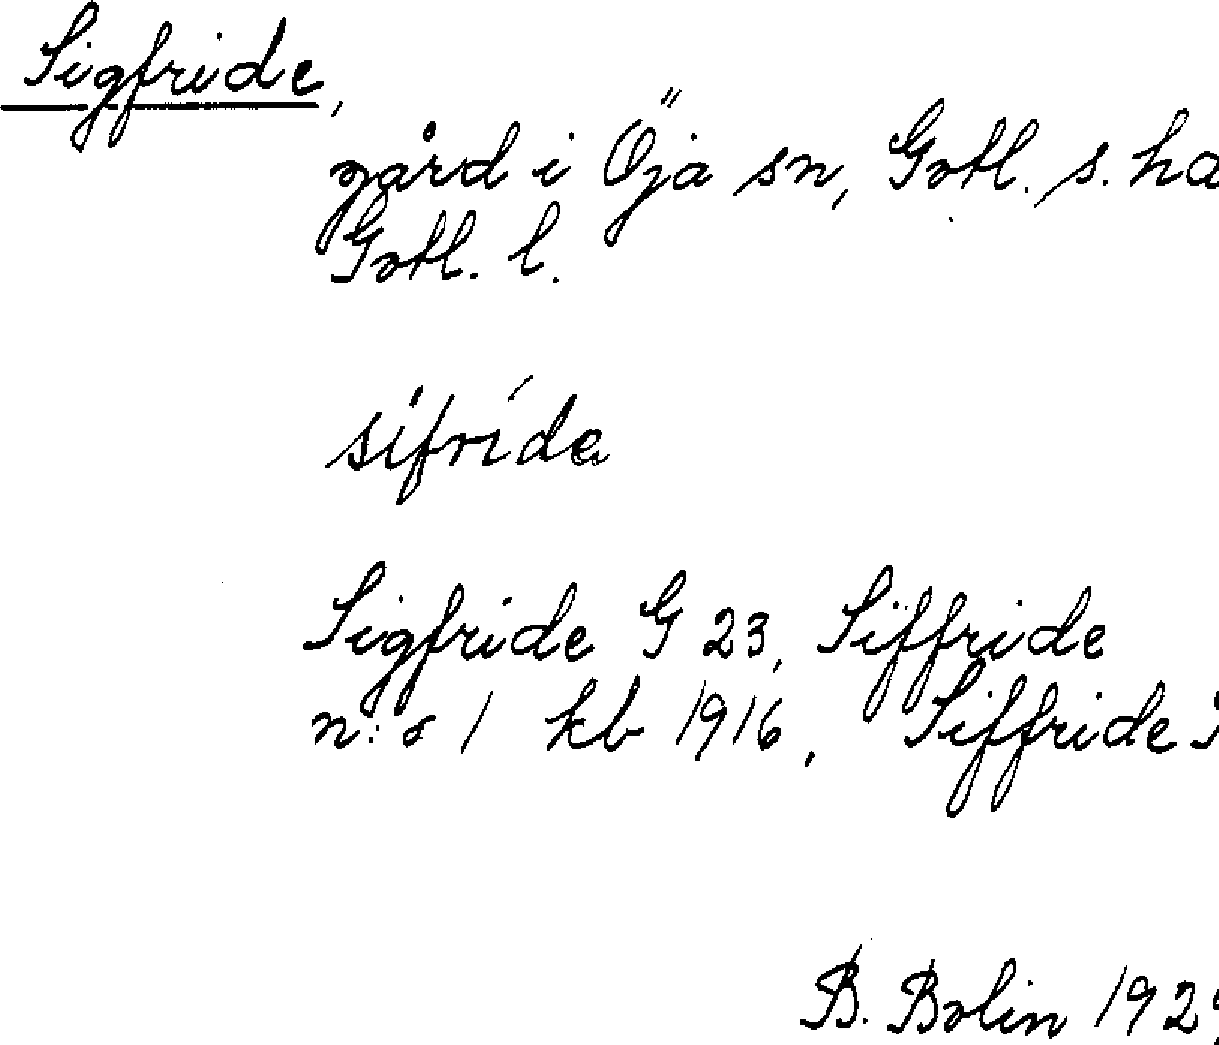 Sigfride,
gård i Öja sn, Gotl. s. hd
Gotl. l.
sífríde
Sigfride G 23, Siffride
n:o 1 kb 1916, Siffride
B. Bolin